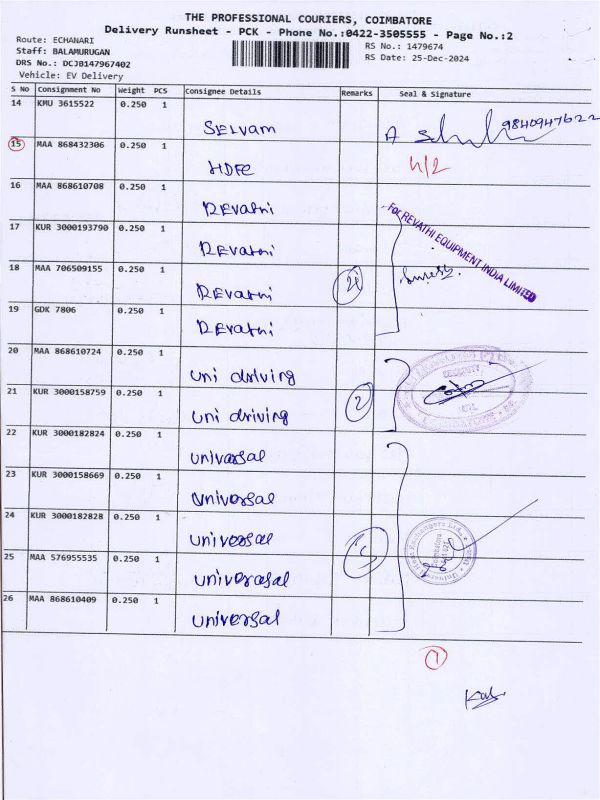 THE PROFESSIONAL COURIERS, COIMBATORE
Delivery Runsheet - PCK - Phone No.:0422-3505555 - Page No.:2
Route: ECHANARI
Staff: BALAMURUGAN
DRS No.: DCJB147967402
Vehicle: EV Delivery
RS No.: 1479674
RS Date: 25-Dec-2024
S No Consignment No Weight PCS Consignee Details Remarks Seal & Signature
14 KMU 3615522 0.250 1 SELVAM A 9840947622
15 MAA 868432306 0.250 1 HDFC
16 MAA 868610708 0.250 1 REVathi
17 KUR 3000193790 0.250 1 REVathi
For REVATHI EQUIPMENT INDIA LIMITED
18 MAA 706509155 0.250 1 REVathi
19 GDK 7806 0.250 1 REVathi
20 MAA 868610724 0.250 1 uni driving
21 KUR 3000158759 0.250 1 uni driving 2
22 KUR 3000182824 0.250 1 universal
23 KUR 3000158669 0.250 1 universal
24 KUR 3000182828 0.250 1 universal
25 MAA 576955535 0.250 1 universal
26 MAA 868610409 0.250 1 universal
1